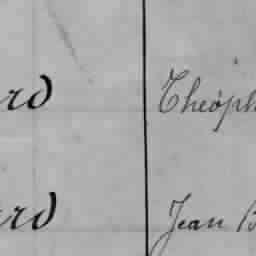 rd Théoph
rd Jean B